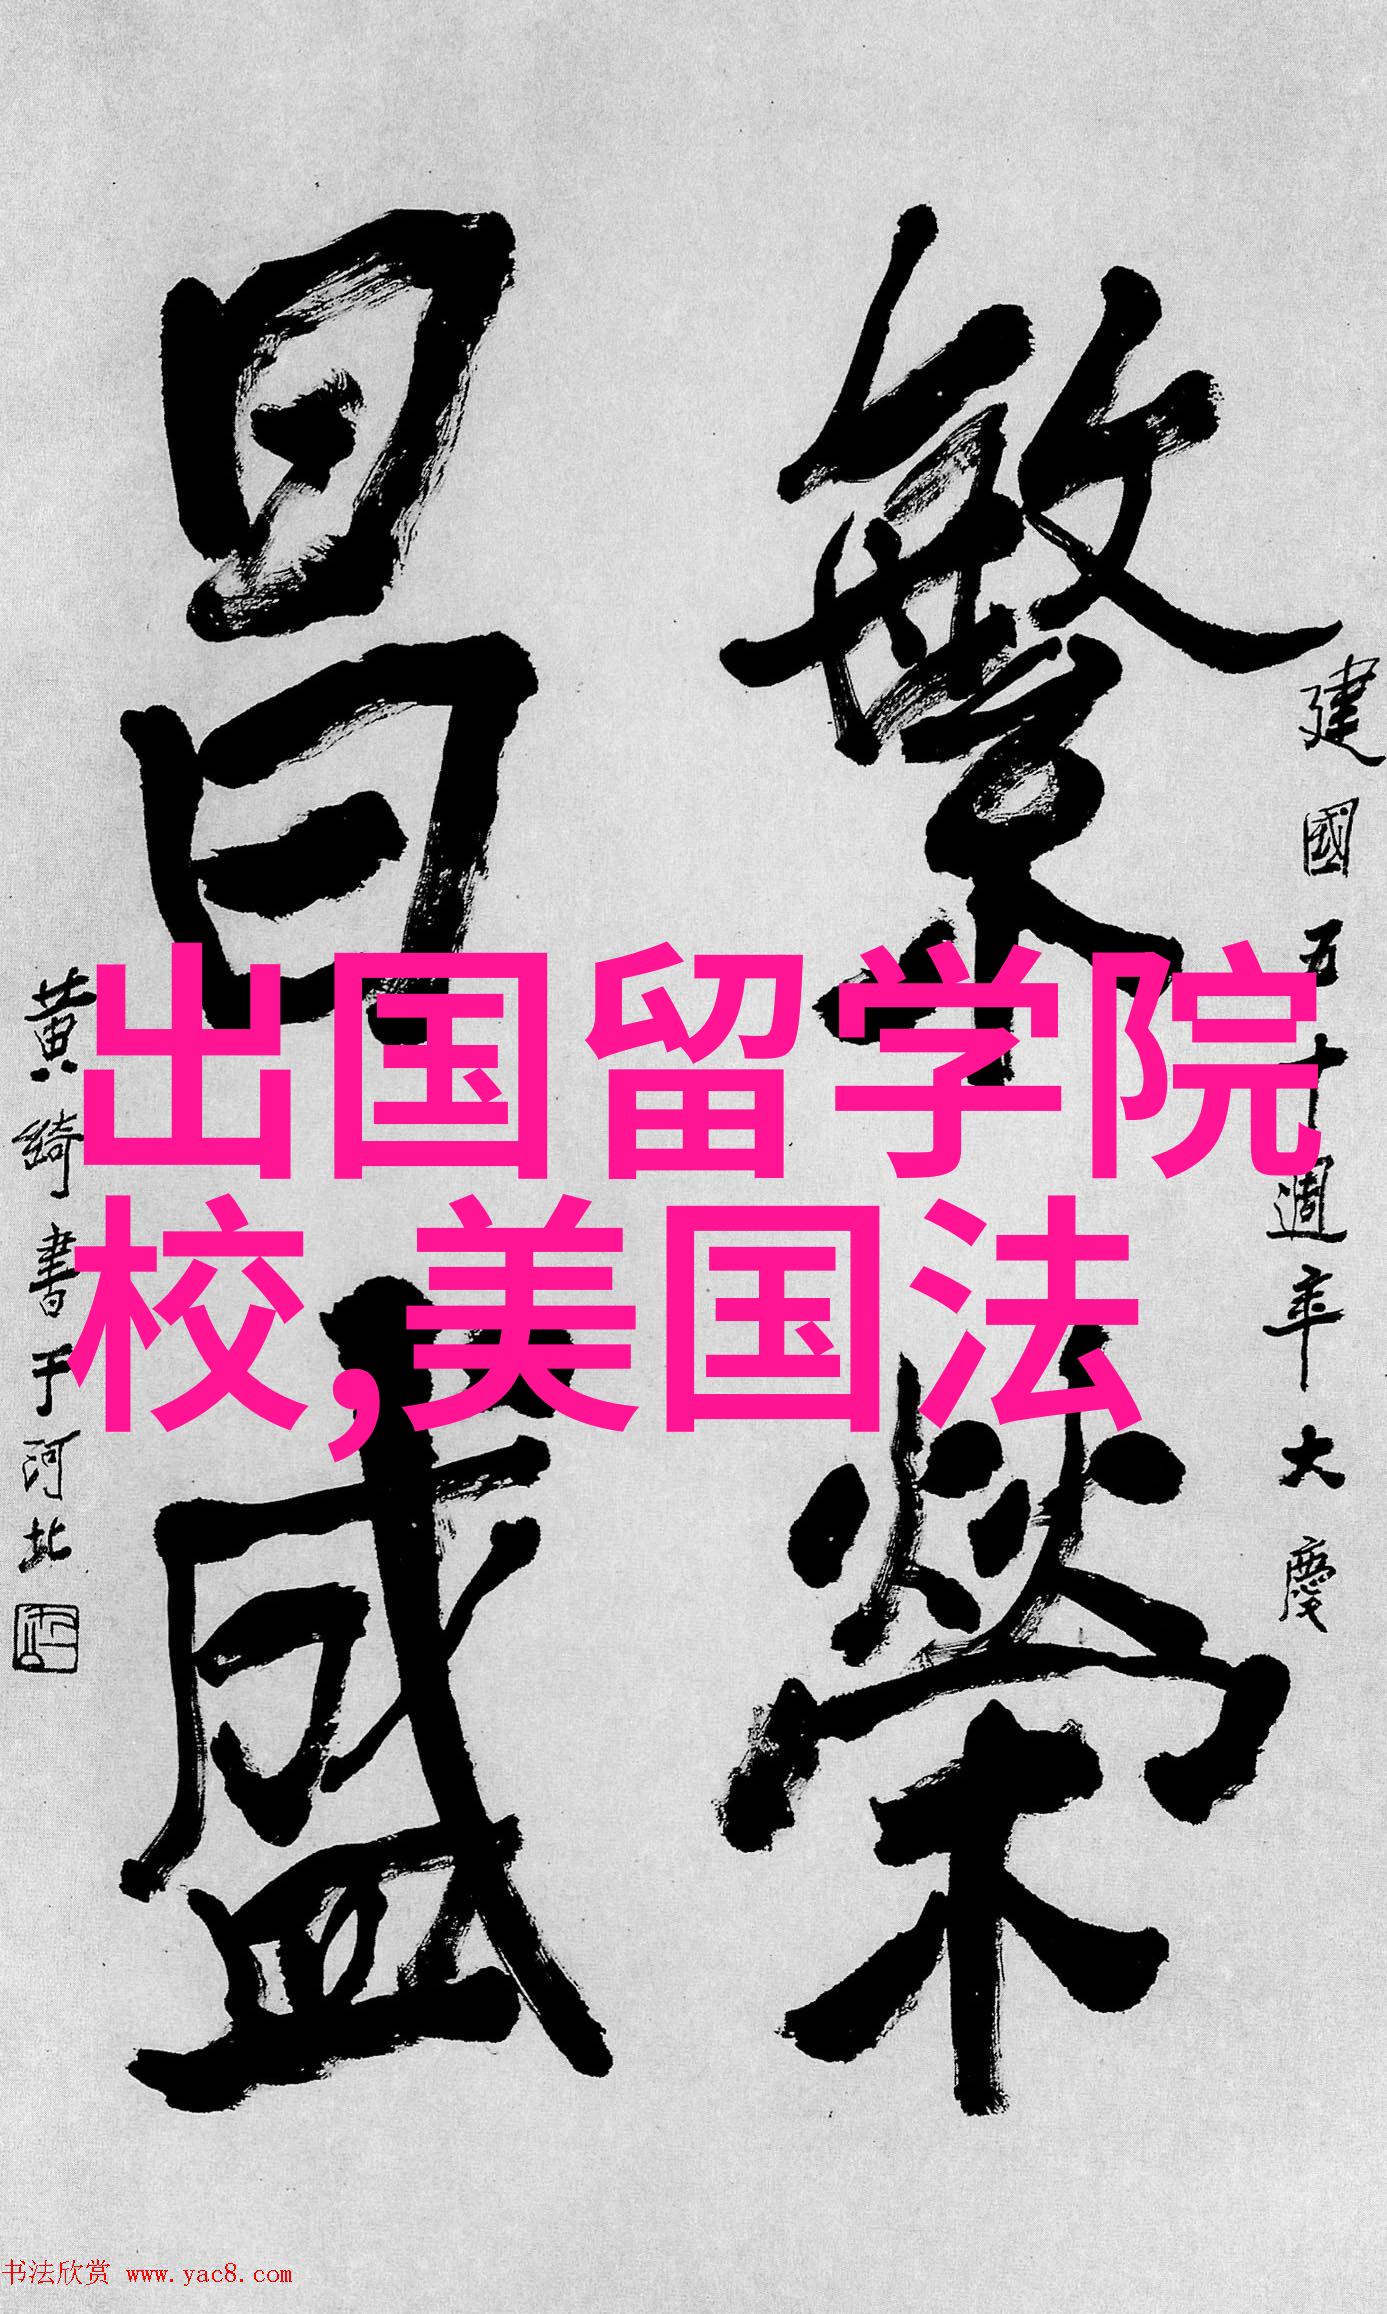 建國五十週年大慶
繁榮
昌盛
黄绮書于河北
出国留学院
校,美国法
书法欣赏 www.yac8.com